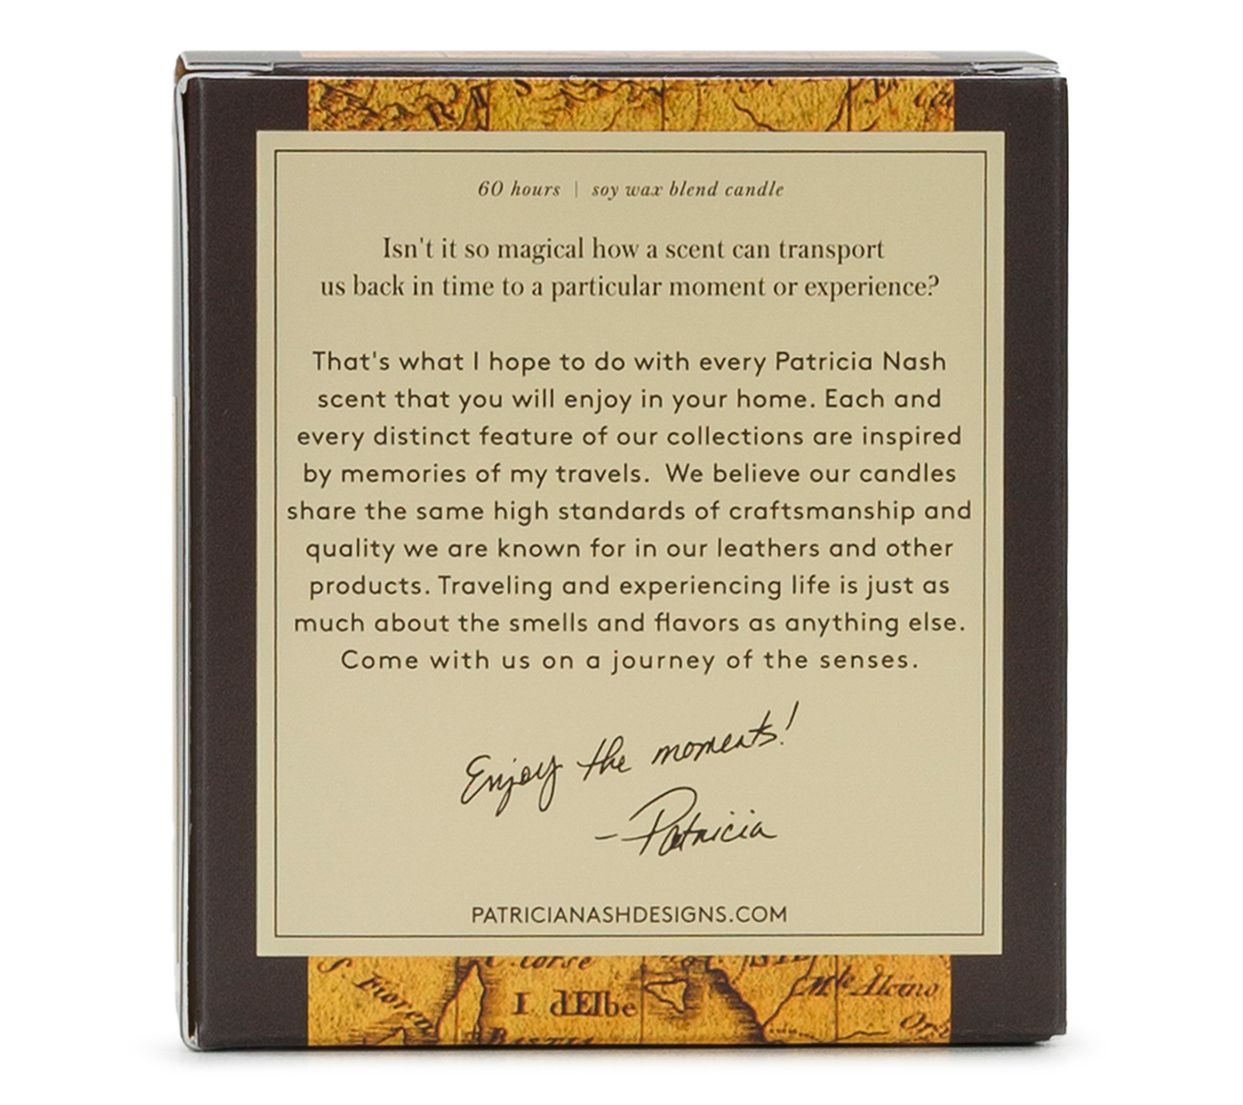 60 hours | soy wax blend candle
Isn't it so magical how a scent can transport
us back in time to a particular moment or experience?
That's what I hope to do with every Patricia Nash
scent that you will enjoy in your home. Each and
every distinct feature of our collections are inspired
by memories of my travels. We believe our candles
share the same high standards of craftsmanship and
quality we are known for in our leathers and other
products. Traveling and experiencing life is just as
much about the smells and flavors as anything else.
Come with us on a journey of the senses.
Enjoy the moments!
-Patricia
PATRICIANASHDESIGNS.COM
I. dElbe